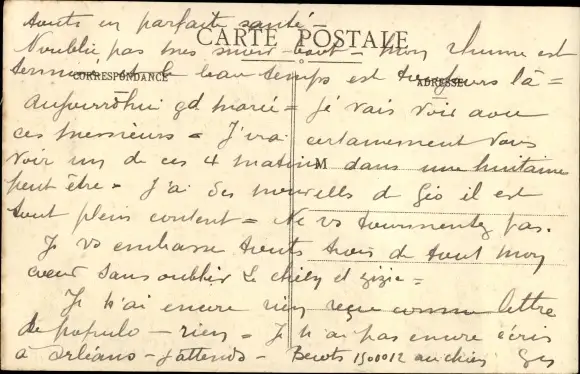 touts en parfaite santé -
CARTE POSTALE
N'oublie pas mes - mon rhume est
CORRESPONDANCE
ADRESSE
terminé et le beau temps est toujours là =
Aujourd'hui gd marée = Je vais voir avec
ces messieurs = J'irai certainement vous
voir un de ces 4 matins dans une huitaine
M
peut être = J'ai des nouvelles d Géo il est
tout plein content = Ne vs tourmentez pas.
Je vs embrasse touts trois de tout mon
coeur sans oublier le et zizie =
Je n'ai encore rien reçu comme lettre
de populo - rien = Je n'ai pas encore écris
à Orléans - J'attends - au chien